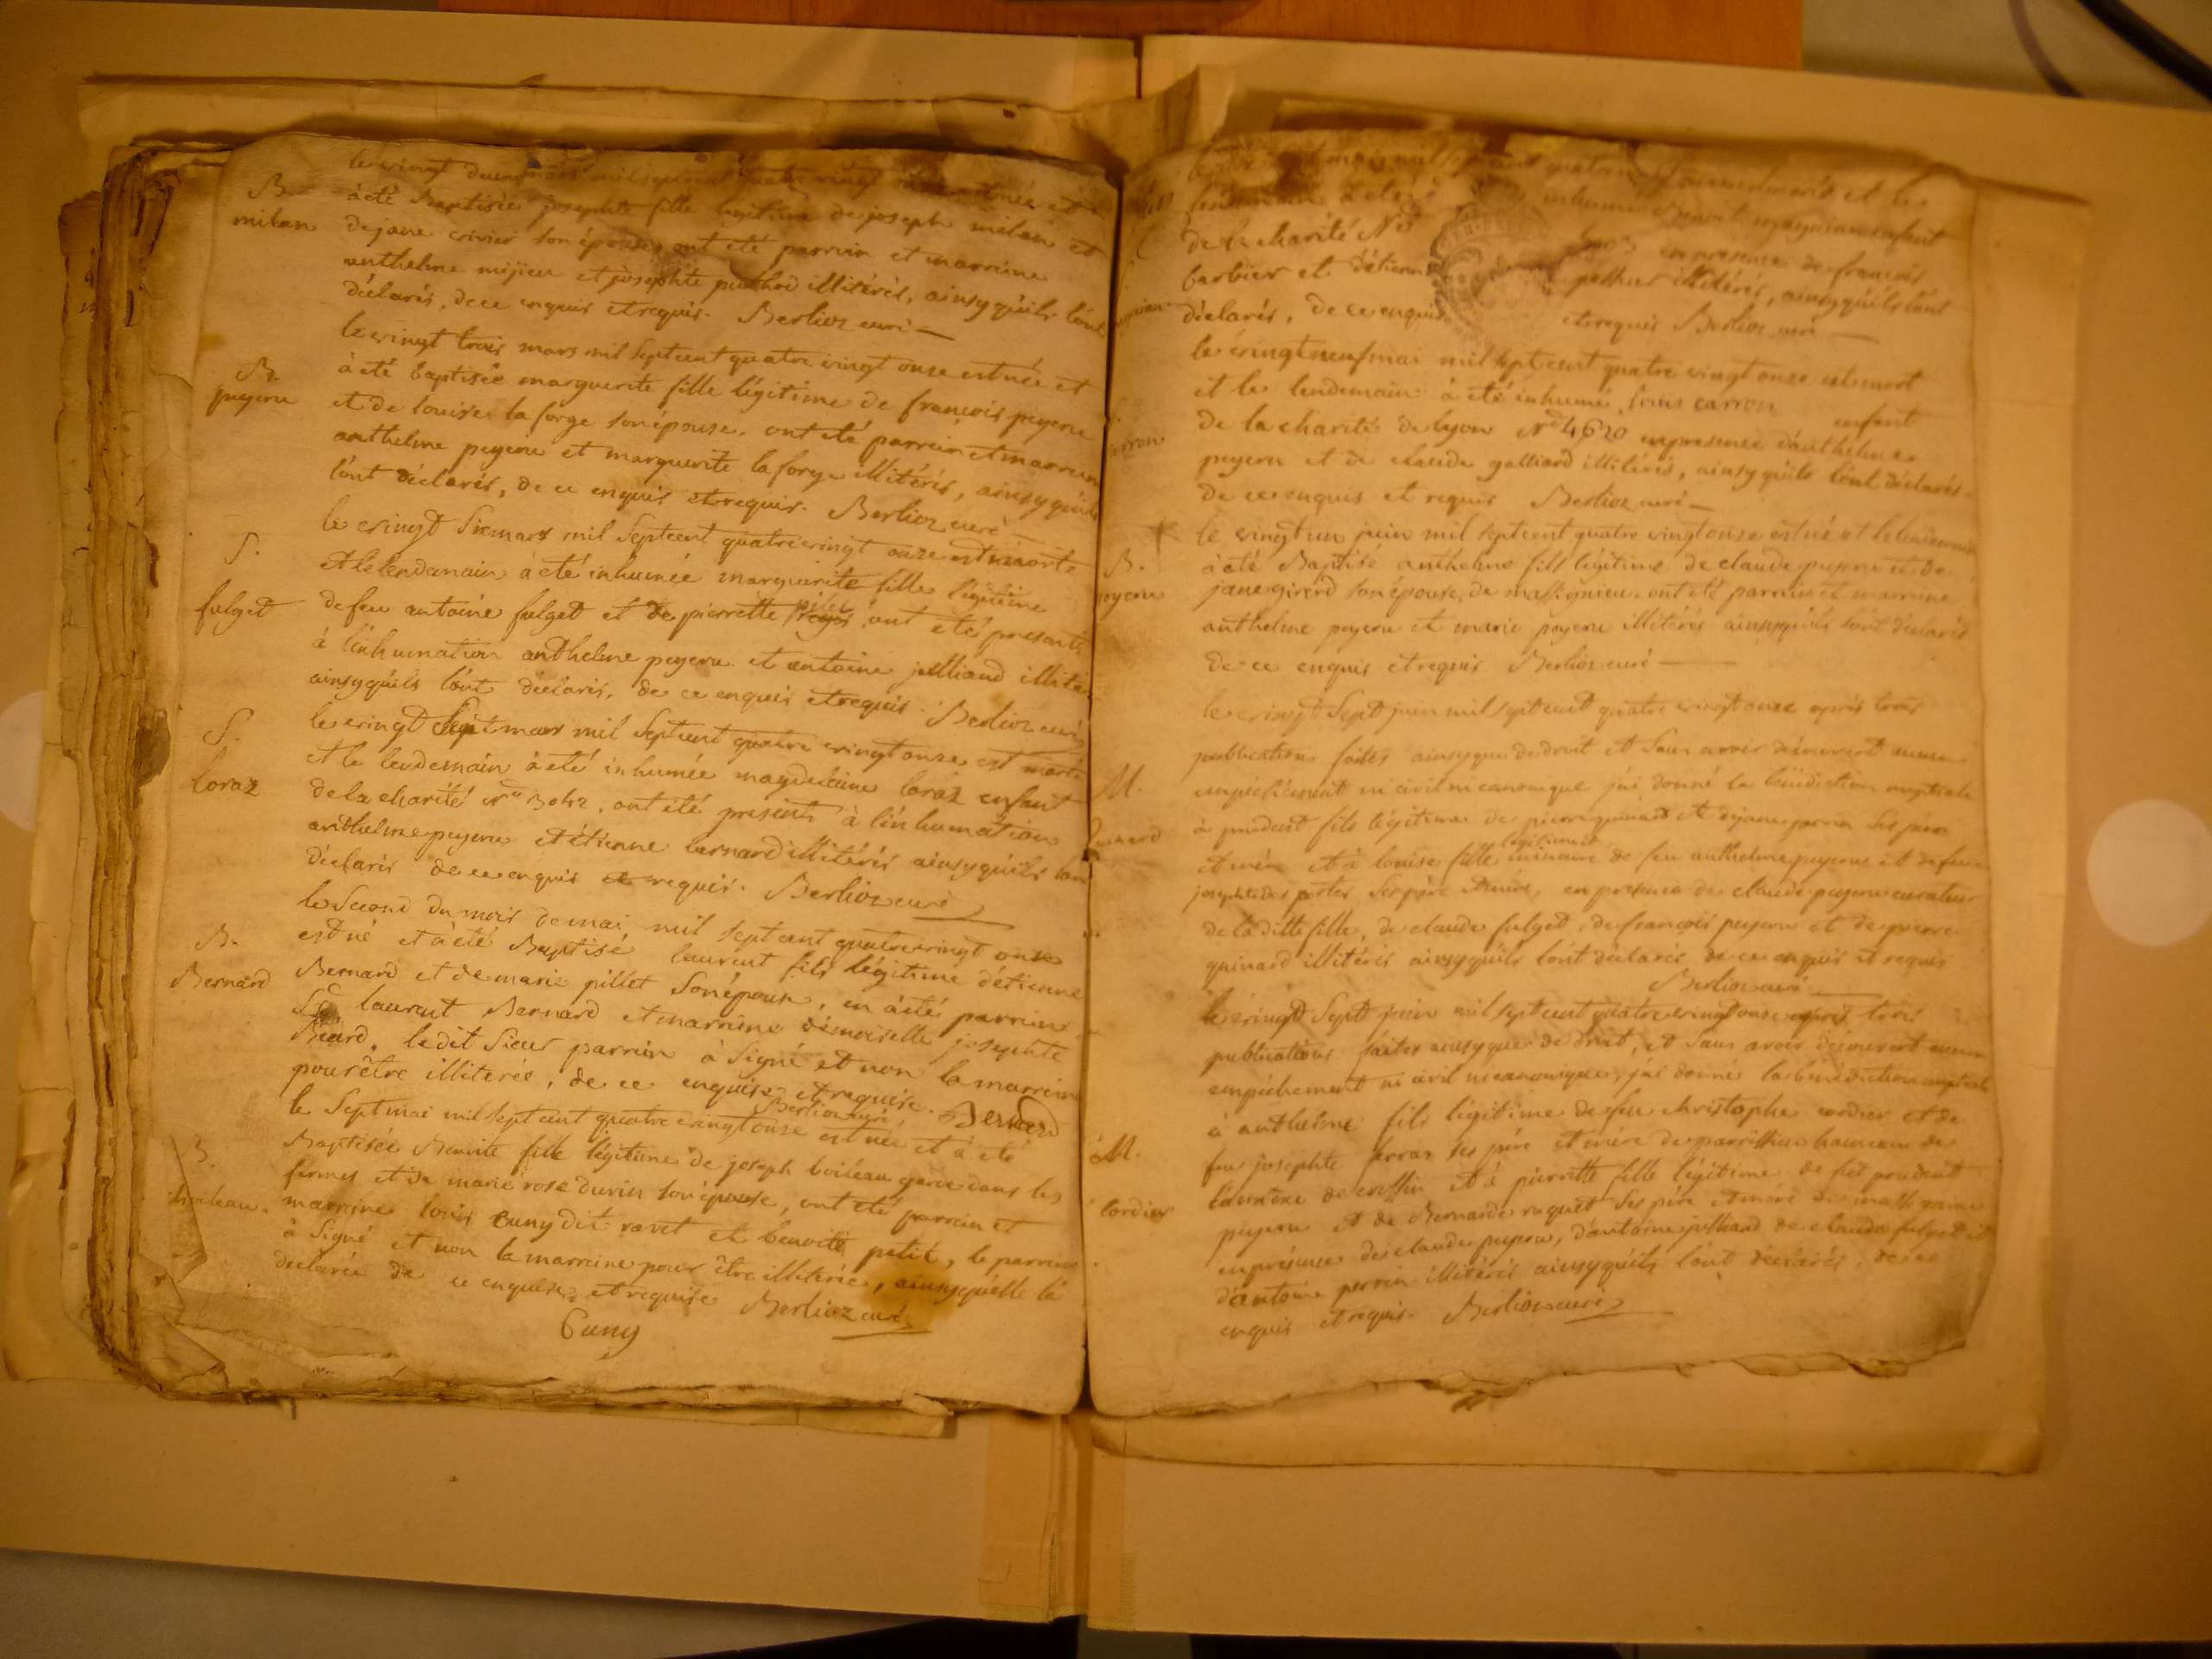 B.
milan
le vingt deux mars mil sept cent quatre vingt onze est née et
à été Baptisée josephte fille légitime de joseph milan et
de jane vivier son épouse, ont été parrein et marreine
anthelme mijieu et josephte puthod illitérés, ainsy qúils lónt
déclarés, de ce enquis et requis. Berlioz curé
B.
peyeru
le vingt trois mars mil Septcent quatre vingt onze est née et
à été baptisée marguerite fille légitime de françois peyeru
et de louise la forge son épouse. ont été parrein et marreine
anthelme peyeru et marguerite la forge illitérés, ainsy qúils
lónt déclarés, de ce enquis et requis. Berlioz curé
S.
fulget
le vingt Six mars mil Septcent quatre vingt onze est morte
et le lendemain à été inhumée marguerite fille légitime
de feu antoine fulget et de pierrette pilet, ont été présents
à línhumation anthelme peyeru et antoine julliand illité
ainsy qúils lónt déclarés, de ce enquis et requis. Berlioz curé
S.
loraz
le vingt Sept mars mil Septcent quatre vingt onze est morte
et le lendemain à été inhumée magdeleine loraz enfant
de la charité No 3042. ont été présents à línhumation
anthelme peyeru et étienne bernard illitérés ainsy qúils lon
déclarés de ce enquis et requis. Berlioz curé
B.
Bernard
le Second du mois de mai mil sept cent quatre vingt onze
est né et à été Baptisé laurent fils légitime détienne
Bernard et de marie pillet Son épouse, en à été parrein
Sr laurent Bernard et marreine démoiselle josephte
Béard. le dit Sieur parrein à Signé et non la marreine
pour être illiterée, de ce enquise et requise. Bernard
Berlioz curé
B.
boileau.
le Sept mai mil Sept cent quatre vingt onze est née et à été
Baptisée Benoite fille légitime de joseph boileau garde dans les
fermes et de marie rose durin son épouse, ont été parrein et
marreine louis Cuny dit ravet et benoite petit, le parrein
à Signé et non la marreine pour être illiterée, ainsy qúelle lá
declarée de ce enquise et requise Berlioz curé
Cuny
mai mil sept cent quatre et le
lendemain à été inhumé Benoit enfant
de la charité No en presence de françois
barbier et détienne illitérés, ainsy qúils lónt
déclarés, de ce enquis et requis Berlioz curé
le vingt neuf mai mil sept cent quatre vingt onze est mort
et le lendemain à été inhumé louis carron enfant
de la charité de lyon No 4620 en presence dánthelme
peyeru et de claude galliard illitérés, ainsy qúils lónt déclarés.
de ce enquis et requis Berlioz curé
B.
peyeru
le vingt un juin mil sept cent quatre vingt onze est né et le lendemain
à été Baptisé anthelme fils légitime de claude peyeru et de
jane girerd son épouse, de massignieu. ont été parrein et marreine
anthelme peyeru et marie peyeru illitérés ainsy qúils lónt déclarés
de ce enquis et requis Berlioz curé
M.
le vingt Sept juin mil sept cent quatre vingt onze après trois
publications faites ainsy que de droit et Sans avoir découvert aucun
empéchement ni civil ni canonique jai donné la bénédiction nuptiale
à prudent fils légitime de pierre quinard et de jane perrin Ses père
et mère et à louise fille légitime mineure de feu anthelme peyeru et de feue
josephte des portes Ses père et mère, en presence de claude peyeru curateur
de la ditte fille, de claude fulget, de françois peyeru et de pierre
quinard illitérés ainsy qúils lónt déclarés de ce enquis et requis
Berlioz curé
M.
Cordier
le vingt Sept juin mil sept cent quatre vingt onze après trois
publications faites ainsy que de droit, et Sans avoir découvert aucun
empéchement ni civil ni canonique, jai donné la benédiction nuptiale
à anthelme fils légitime de feu christophe cordier et de
feue josephte ferraz ses père et mère de parroisse hameau de
de cressin et à pierrette fille légitime de feu prudent
peyeru et de Bernarde ruguet Ses père et mère de
en présence de claude peyeru, dántoine julliand de claude fulget et
dántoine perrin illitérés ainsy qúils lónt déclarés, de ce
enquis et requis. Berlioz curé